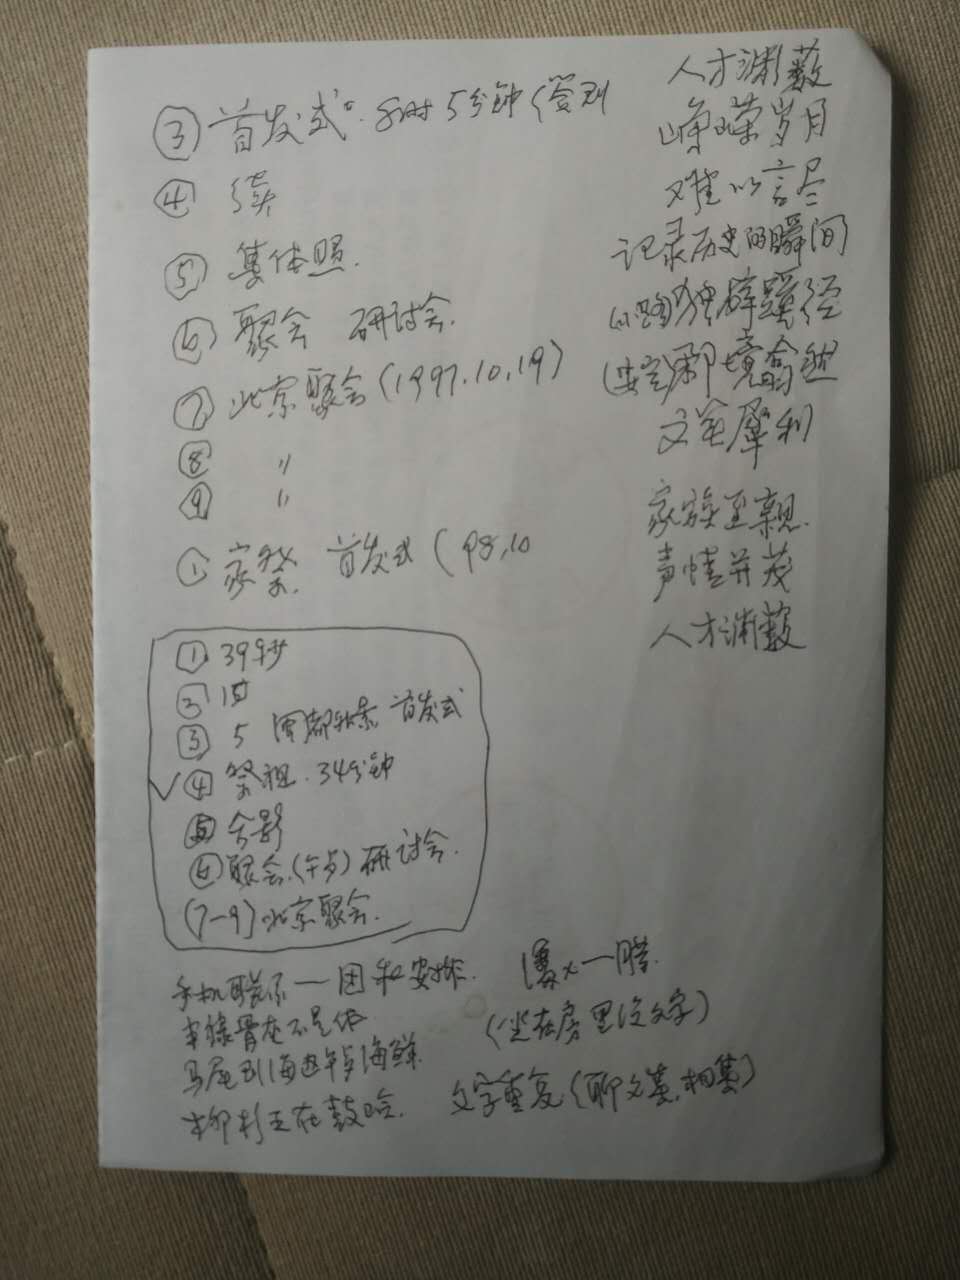 ③ 首发式 5分钟(签到
④ 续
⑤ 集体照.
⑥ 聚会 研讨会.
⑦ 北京聚会(1997.10.19)
⑧ 〃
⑨ 〃
① 家祭. 首发式(98.10
① 39秒
②
③ 5 首发式
④ 祭祖. 34分钟
⑤ 合影
⑥ 聚会.(午) 研讨会.
(7-9) 北京聚会.
手机联系一 和安排.
不具体
马尾 海 海鲜
柳杉王在鼓岭.
人才渊薮
峥嵘岁月
难以言尽
记录历史的瞬间
独辟蹊径
境翕然
文笔犀利
家族至亲.
声情并茂
人才渊薮
一腾.
(坐在房里 文字)
文字重复(聊文集.相集)